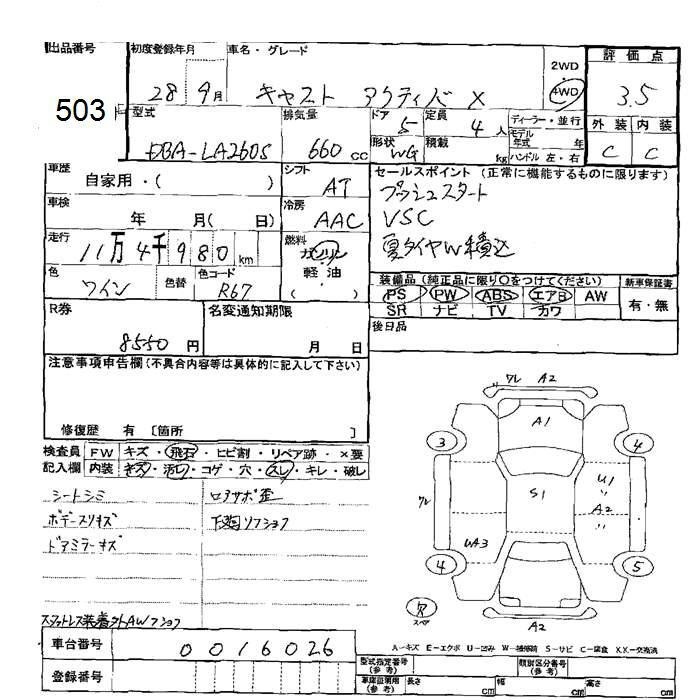 出品番号
503
初度登録年月
28 9月
車名・グレード
キャスト アクティバ X
2WD
4WD
評価点
3.5
外装 内装
C C
型式
DBA-LA260S
排気量
660 cc
ドア 5
形状 WG
定員 4人
積載 kg
ディーラー・並行
モデル年式 年
ハンドル 左・右
車歴
自家用・( )
シフト
AT
車検
年 月( 日)
冷房
AAC
走行
11万4千980 km
燃料
ガソリン
軽油
( )
色
ワイン
色替
色コード
R67
セールスポイント (正常に機能するものに限ります)
プッシュスタート
VSC
夏タイヤW積込
装備品 (純正品に限り○をつけてください)
PS PW ABS エアB AW
SR ナビ TV カワ
新車保証書
有・無
後日品
R券
8550 円
名変通知期限
月 日
注意事項申告欄(不具合内容等は具体的に記入して下さい)
修復歴 有 [箇所 ]
検査員記入欄
FW キズ・飛石・ヒビ割・リペア跡・×要
内装 キズ・汚レ・コゲ・穴・スレ・キレ・破レ
シートシミ
ボデースリキズ
ドアミラーキズ
ロアサポ歪
下廻リフショク
スタットレス装着外AWフショク
車台番号
0016026
登録番号
ワレ A2
A1
3
4
ワレ
S1
U1
〃
A2
〃
WA3
4
5
スペア
A2
A-キズ E-エクボ U-凹み W-補修跡 S-サビ C-腐食 XX-交換済
型式指定番号(参考)
類別区分番号(参考)
車庫証明用(参考)
長さ cm
幅 cm
高さ cm